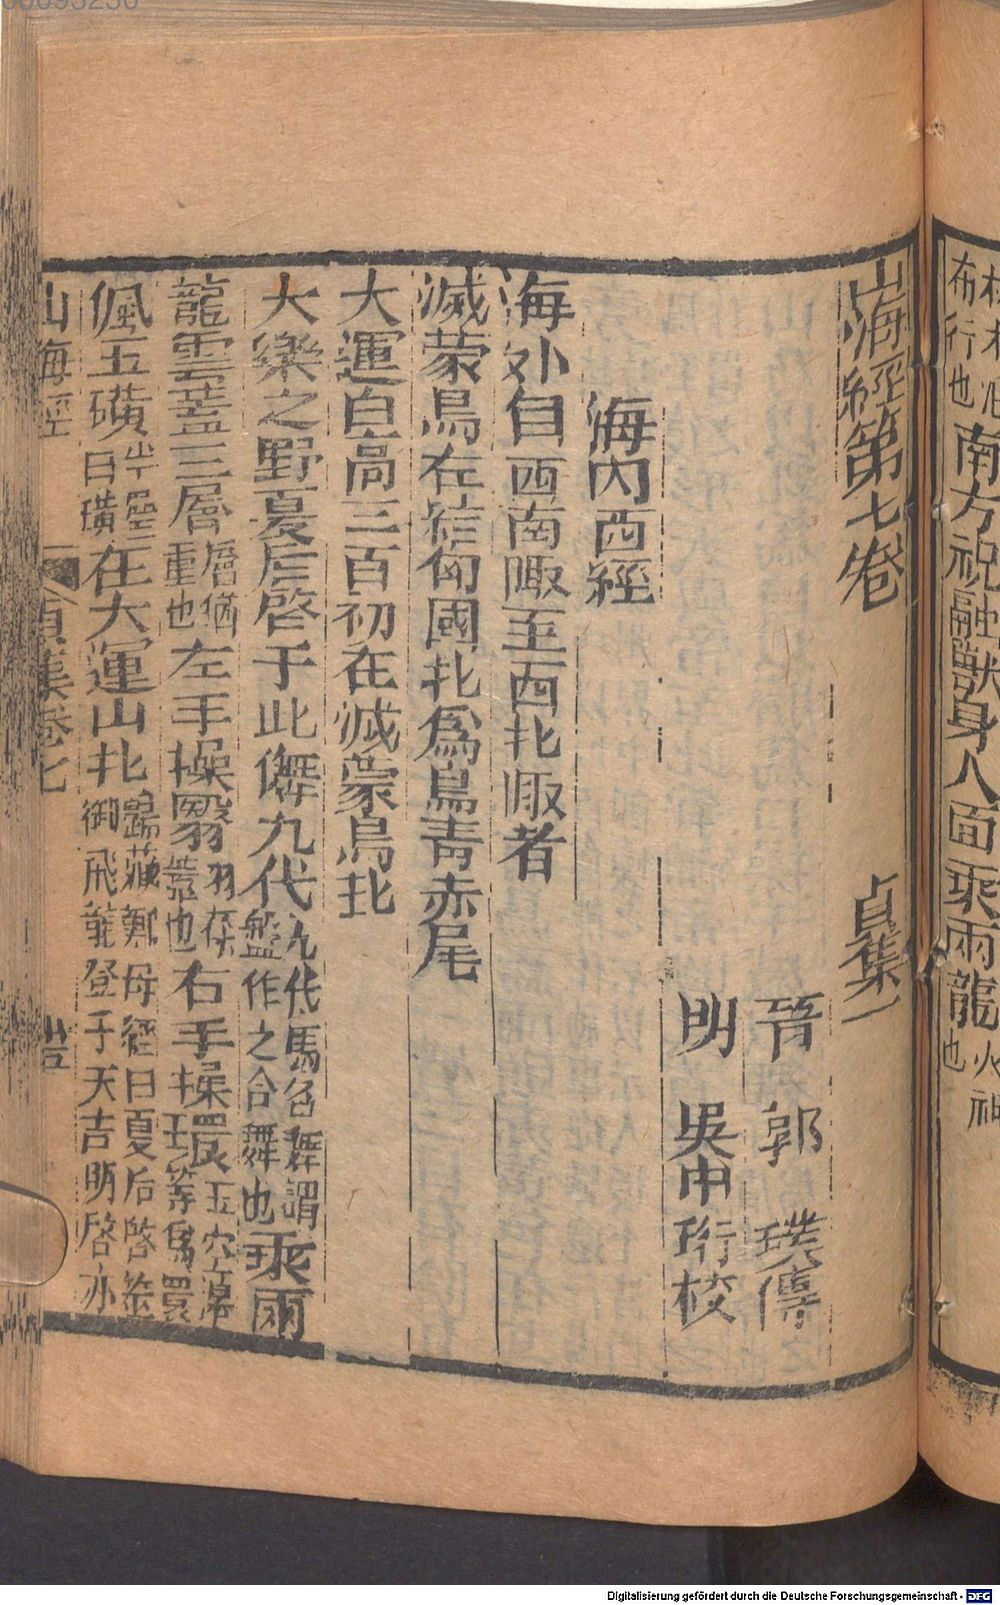 布行也南方祝融獸身人面乘兩龍火神也
山海經第七卷　貞集一
晉　郭　璞傳
明　吳中珩校
海內西經
海外自西南陬至西北陬者
滅蒙鳥在結匈國北為鳥青赤尾
大運自高三百初在滅蒙鳥北
大樂之野夏后啓于此儛九代九代馬名舞謂盤作之合舞也乘兩
龍雲蓋三層層猶重也左手操翳羽葆幢也右手操環玉空邊等為環
佩玉璜半璧曰璜在大運山北歸藏鄭母經曰夏后啓筮御飛龍登于天吉明啓亦
山海經　貞集卷七
Digitalisierung gefördert durch die Deutsche Forschungsgemeinschaft - DFG